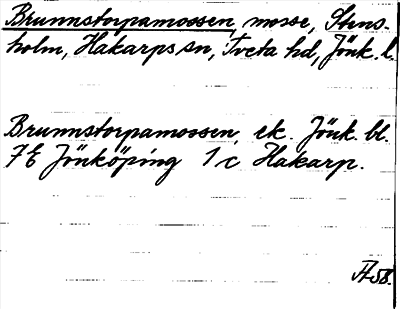 Brunnstorpamossen, mosse, Stens-
holm, Hakarps sn, Tveta hd, Jönk. l.
Brunnstorpamossen, ek. Jönk. bl.
7E Jönköping 1c Hakarp.